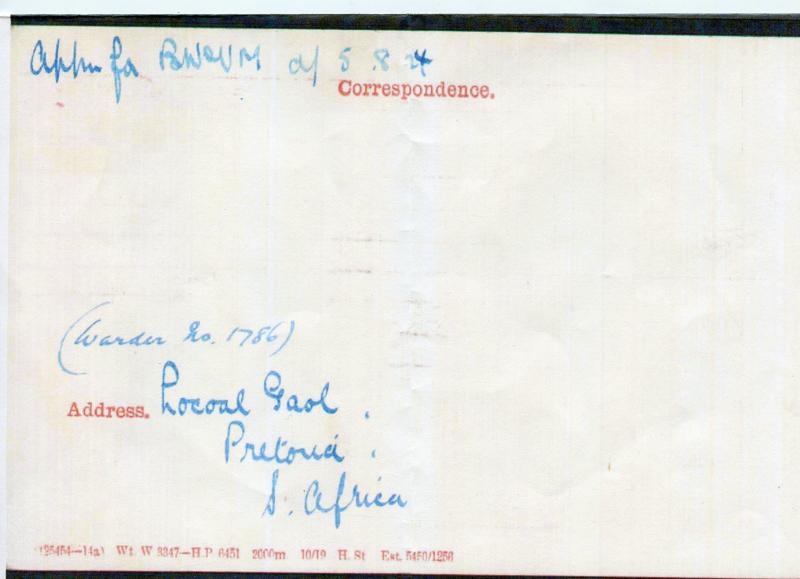 Appn for BW&VM d/ 5.8.24
Correspondence.
(Warder No. 1786)
Address. Locoal Gaol.
Pretoria.
S. Africa
(25454—14a) Wt. W 3347—H.P 6451 2000m 10/19 H. St Est. 5450/1256